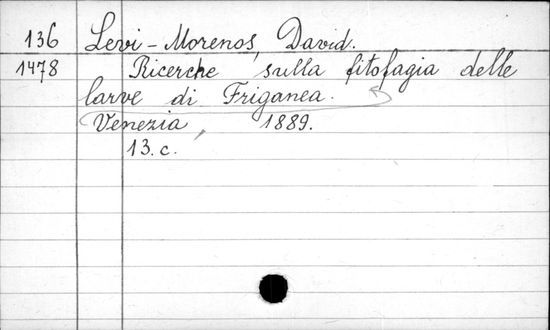 136 Levi-Morenos, David.
1478 Ricerche sulla fitofagia delle
larve di Friganea.
Venezia, 1889.
13. c.